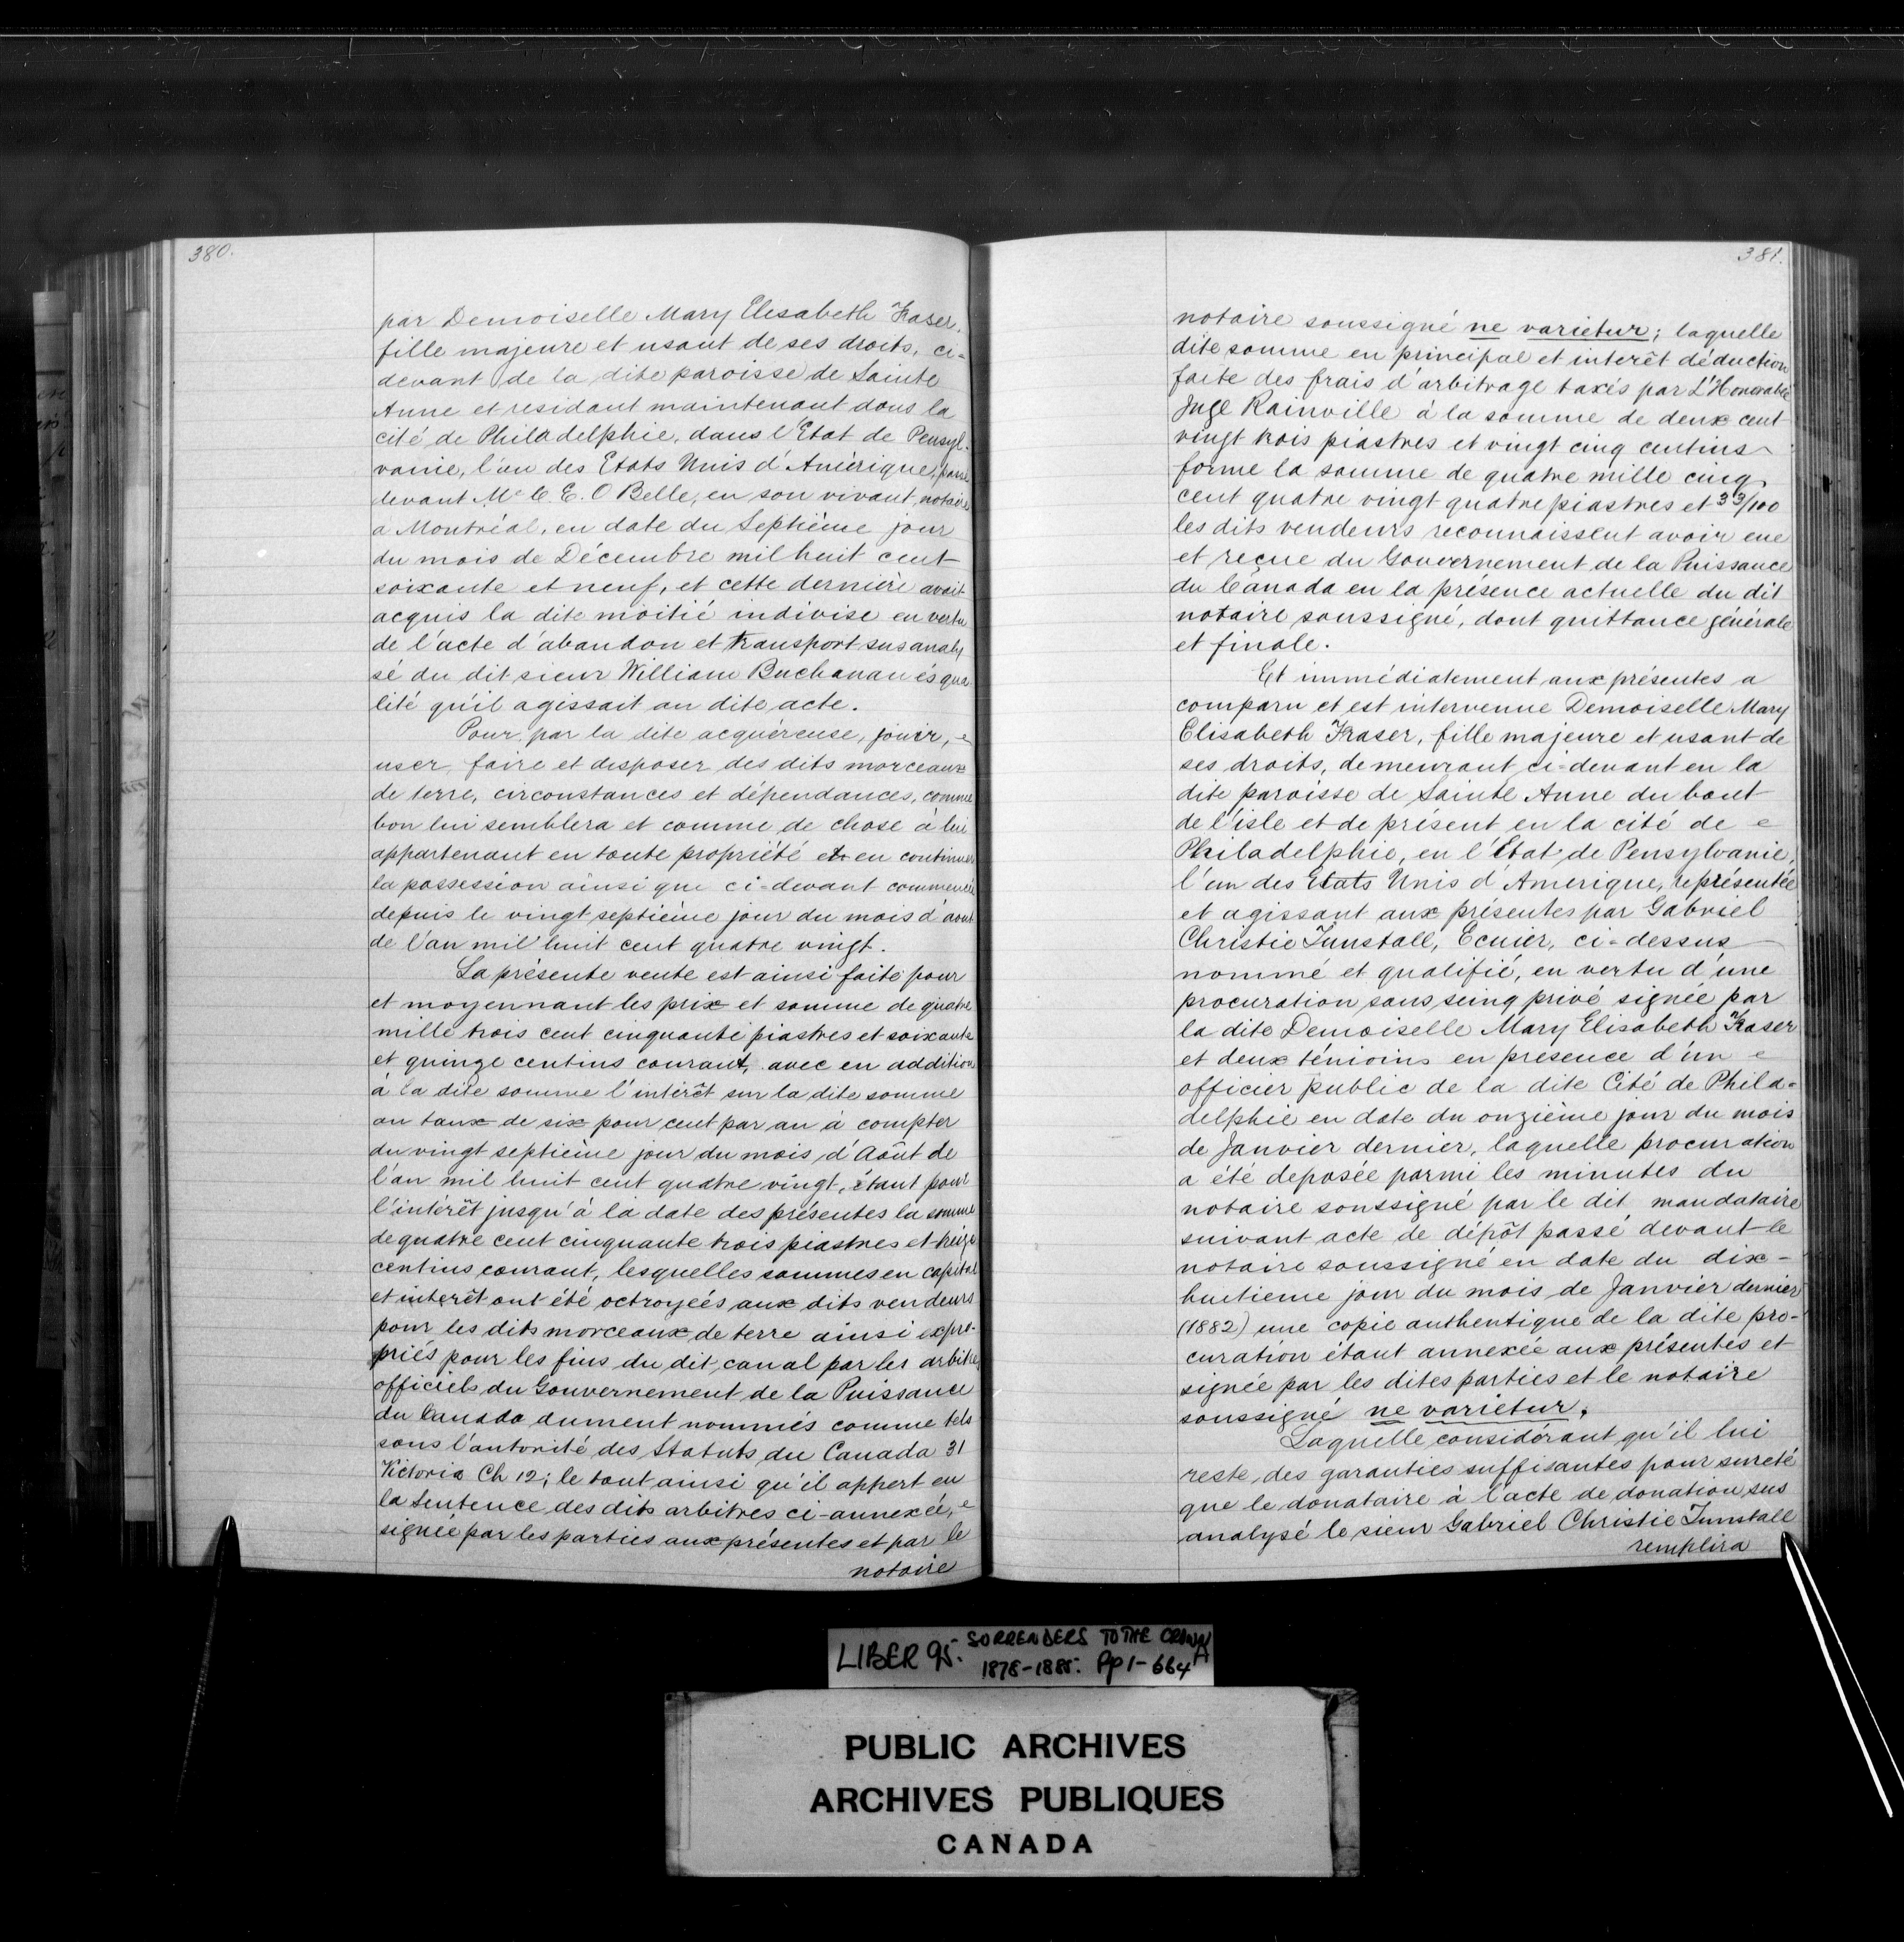 380.
par Demoiselle Mary Elesabeth Fraser,
fille majeure et usant de ses droits, ci-
devant de la dite paroisse de Sainte
Anne et residant maintenant dans la
cité de Philadelphie, dans l'Etat de Pensyl-
vanie, l'un des Etats Unis d'Amérique, passé
devant Me C. E. O Belle, en son vivant, notaire
a Montréal, en date du Septième jour
du mois de Décembre mil huit cent
soixante et neuf, et cette dernière avait
acquis la dite moitié indivise en vertu
de l'acte d'abandon et transport sus analy
sé du dit sieur William Buchanan ès qua
lité qu'il agissait au dite acte.
Pour par la dite acquéreuse, jouir,
user, faire et disposer des dits morceaux
de terre, circonstances et dépendances, comme
bon lui semblera et comme de chose à lui
appartenant en toute propriété et en continuer
la possession ainsi que ci-devant commencée
depuis le vingt septième jour du mois d'aout
de l'an mil huit cent quatre vingt.
La présente vente est ainsi faite pour
et moyennant les prix et somme de quatre
mille trois cent cinquante piastres et soixante
et quinze centins courant, avec en addition
à la dite somme l'intérêt sur la dite somme
au taux de six pour cent par an à compter
du vingt septième jour du mois d'Août de
l'an mil huit cent quatre vingt, étant pour
l'intérêt jusqu'à la date des présentes la somme
de quatre cent cinquante trois piastres et treize
centins courant, lesquelles sommes en capital
et intérêt ont été octroyeés aux dits vendeurs
pour les dits morceaux de terre ainsi expro-
priés pour les fins du dit canal par les arbitres
officiels du Gouvernement de la Puissance
du Canada dument nommés comme tels
sous l'autorité des Statuts du Canada 31
Victoria Ch 12; le tout ainsi qu'il appert en
la Sentence des dits arbitres ci-annexée,
signée par les parties aux présentes et par le
notaire
381.
notaire soussigné ne varietur; laquelle
dite somme en principal et interêt déduction
faite des frais d'arbitrage taxés par L'Honorable
Juge Rainville à la somme de deux cent
vingt trois piastres et vingt cinq centins
forme la somme de quatre mille cinq
cent quatre vingt quatre piastres et 33/100
les dits vendeurs reconnaissent avoir eue
et reçue du Gouvernement de la Puissance
du Canada en la présence actuelle du dit
notaire soussigné, dont quittance générale
et finale.
Et immédiatement aux présentes a
comparu et est intervenue Demoiselle Mary
Elisabeth Fraser, fille majeure et usant de
ses droits, demeurant ci-devant en la
dite paroisse de Sainte Anne du bout
de l'isle et de présent en la cité de
Philadelphie, en l'Etat de Pensylvanie,
l'un des Etats Unis d'Amerique, représentée
et agissant aux présentes par Gabriel
Christie Tunstall, Ecuier, ci-dessus
nommé et qualifié, en vertu d'une
procuration sous seing privé signée par
la dite Demoiselle Mary Elisabeth Fraser
et deux témoins en presence d'un
officier public de la dite Cité de Phila-
delphie en date du onzième jour du mois
de Janvier dernier, laquelle procuration
a été deposée parmi les minutes du
notaire soussigné par le dit mandataire
suivant acte de dépôt passé devant le
notaire soussigné en date du dix-
huitieme jour du mois de Janvier dernier
(1882) une copie authentique de la dite pro-
curation étant annexée aux présentes et
signée par les dites parties et le notaire
soussigné ne varietur.
Laquelle considérant qu'il lui
reste des garanties suffisantes pour sureté
que le donataire à l'acte de donation sus
analysé le sieur Gabriel Christie Tunstall
remplira
LIBER 95. SURRENDERS TO THE CROWN
1878-1885. Pp 1-664A
PUBLIC ARCHIVES
ARCHIVES PUBLIQUES
CANADA